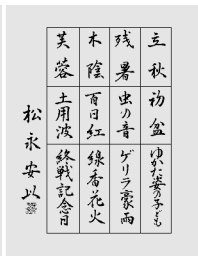 立秋
初盆
ゆかた姿の子ども
残暑
虫の音
ゲリラ豪雨
木陰
百日紅
線香花火
芙蓉
土用波
終戦記念日
松永安以